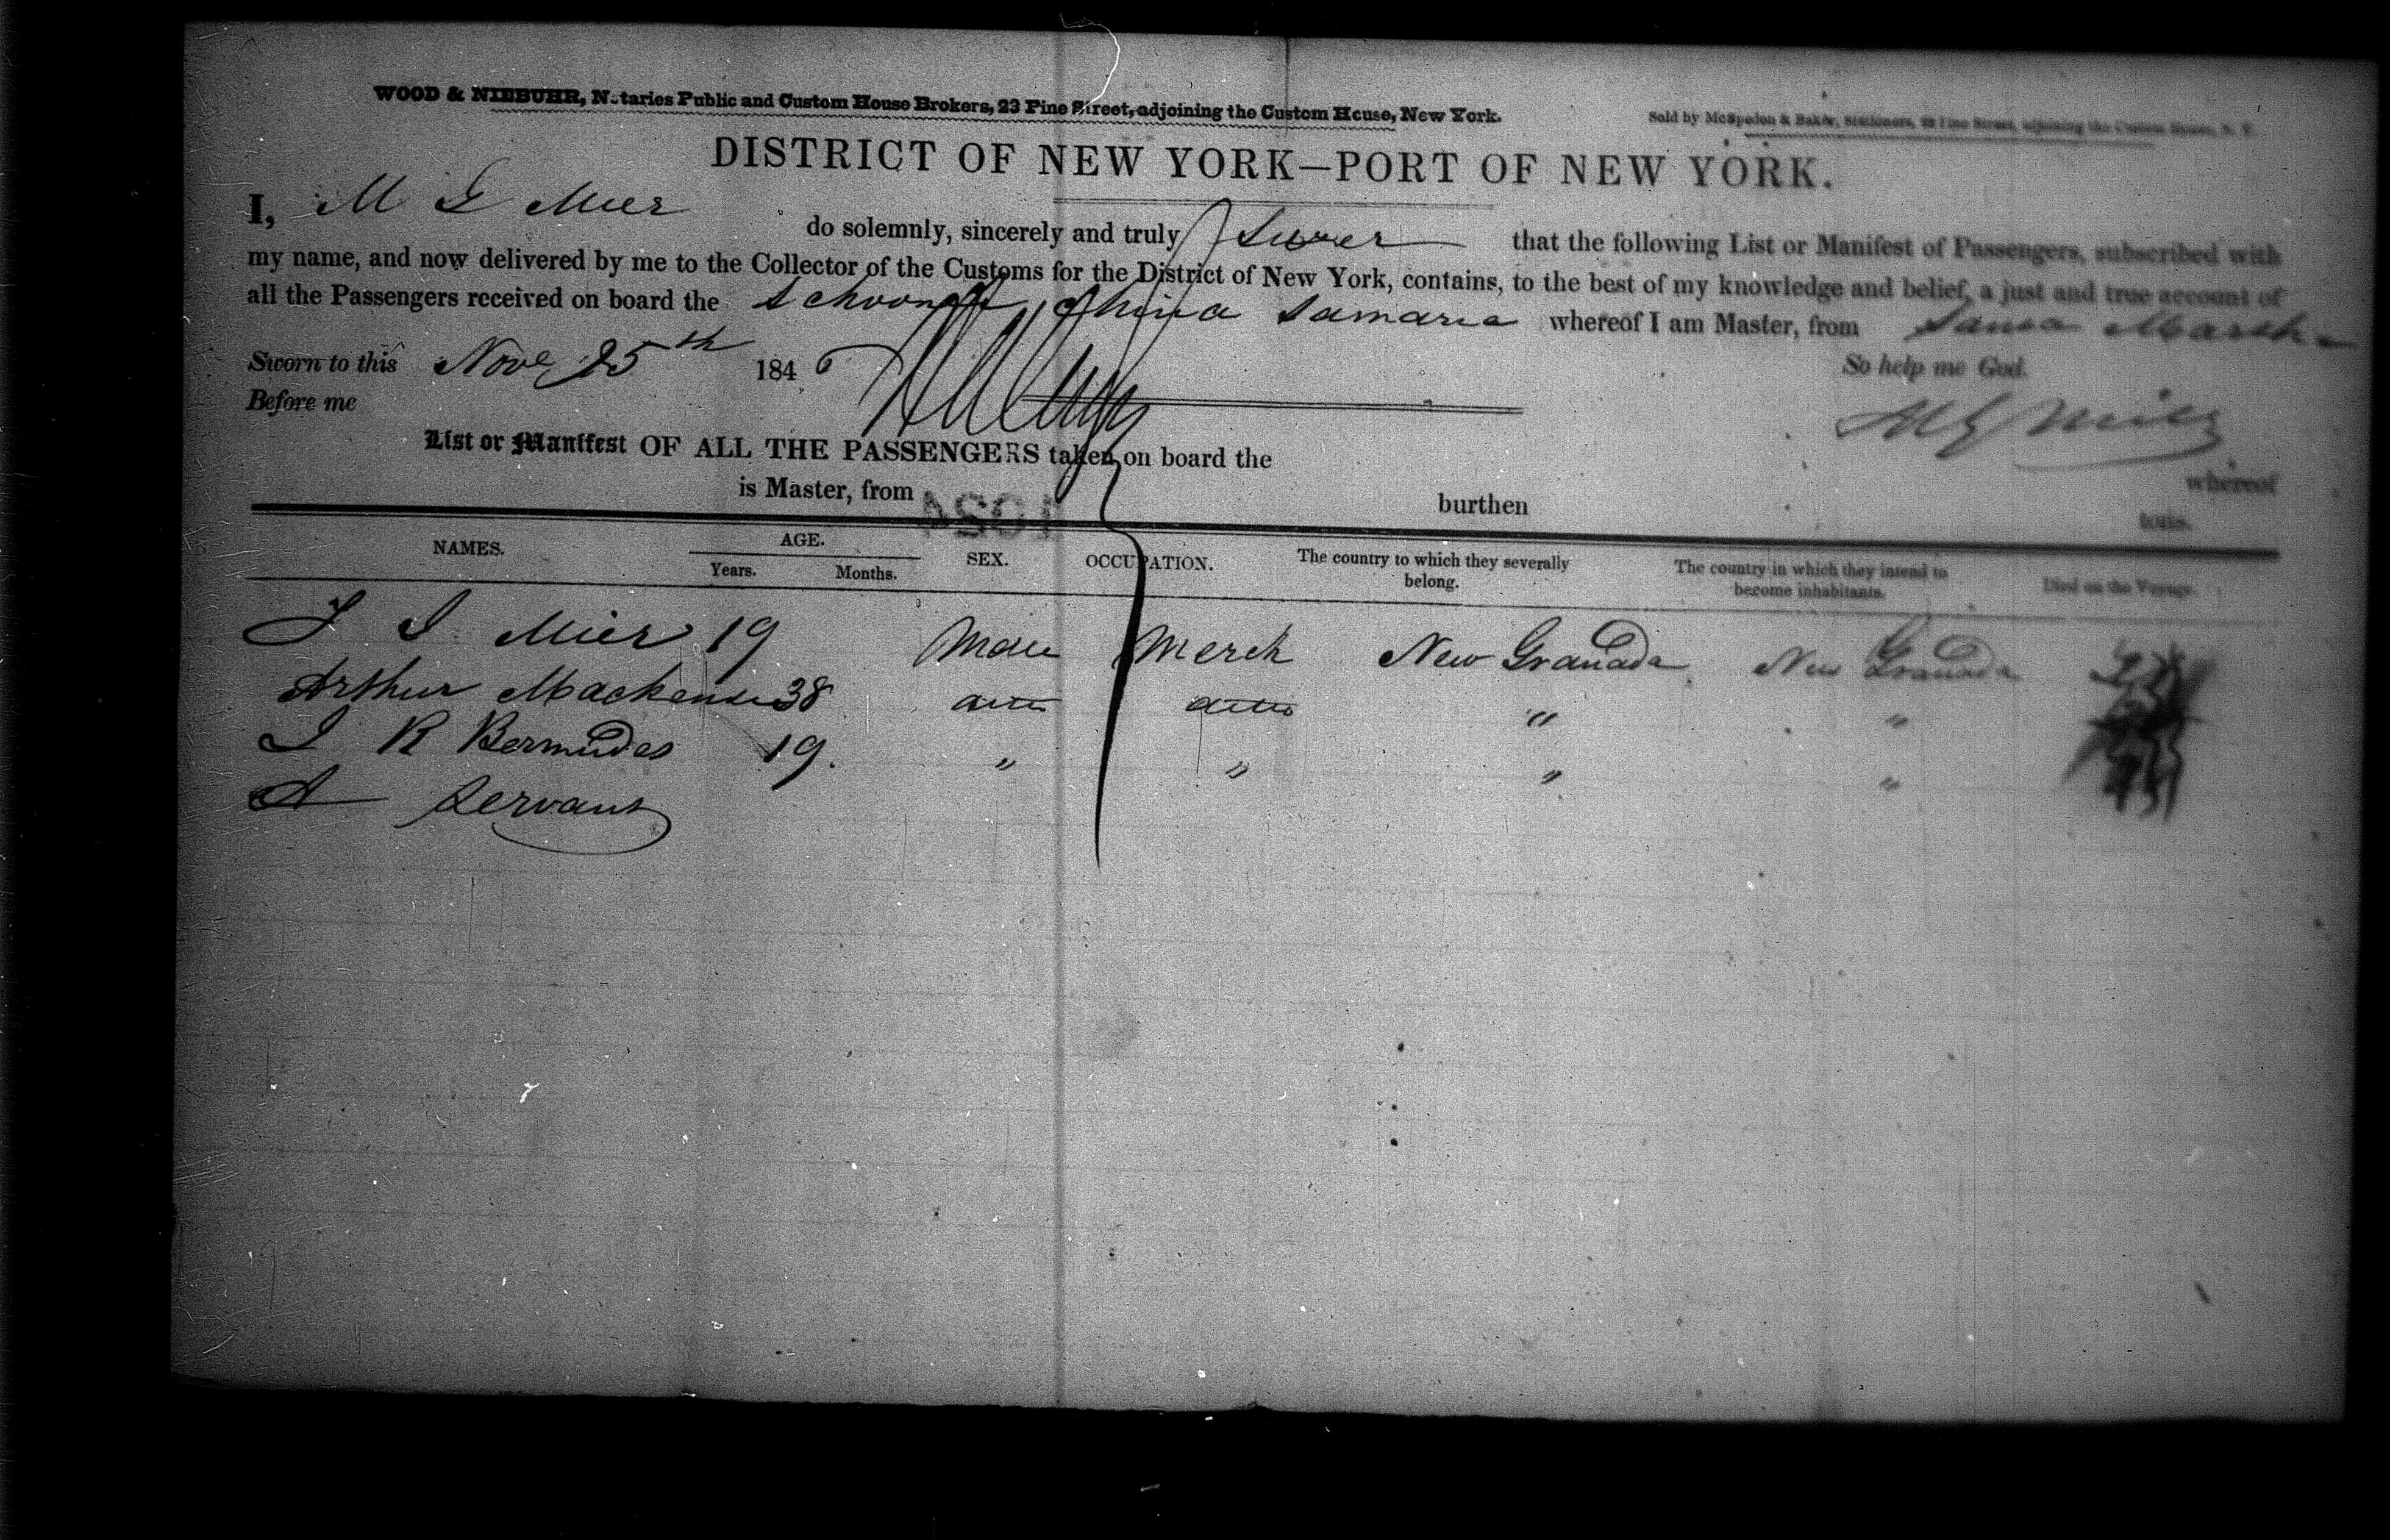 WOOD & NIEBUHR, Notaries Public and Custom House Brokers, 23 Pine Street, adjoining the Custom House, New York.
Sold by McSpedon & Baker, Stationers, Pine Street, adjoining the Custom House, N. Y.
DISTRICT OF NEW YORK—PORT OF NEW YORK.
I, M G Mier do solemnly, sincerely and truly Swear that the following List or Manifest of Passengers, subscribed with
my name, and now delivered by me to the Collector of the Customs for the District of New York, contains, to the best of my knowledge and belief, a just and true account of
all the Passengers received on board the Schoon Samaria whereof I am Master, from Santa Martha
Sworn to this Nove 25th 1846 So help me God.
Before me M G Mier
List or Manifest OF ALL THE PASSENGERS taken on board the whereof
is Master, from burthen tons.
1024
NAMES. AGE. SEX. OCCUPATION. The country to which they severally belong. The country in which they intend to become inhabitants. Died on the Voyage.
Years. Months.
J J Mier 19 Male Merch New Granada New Granada
Arthur Mackensie 38 ditto ditto " "
J R Bermudes 19. " " " "
A Servant